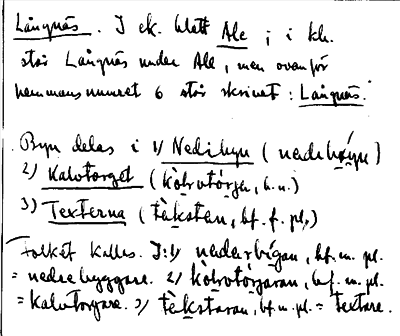 Långnäs. I ek. blatt Ale; i kh.
står Långnäs under Ale, men ovanför
hemmansnumret 6 står skrivet: Långnäs."
Byn delas i 1/ Nedibyn (nedebøyn)
2) Kalvtorget (kòlvotórjɘ, b.n.)
3) Texterna (tèkstan, bf. f. pl.)
Folket kallas. I: 1) nederbígan, bf. m. pl.
= nedre byggare. 2) kòlvotórjaran, bf. m. pl.
= kalvtorgare. 3) tèkstaran, bf. m. pl. = textare.